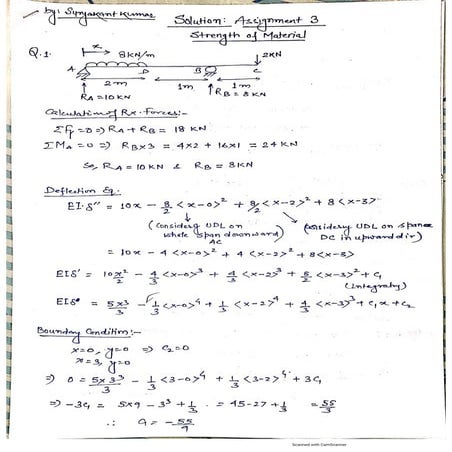 by: Suryakant Kumar
Solution: Assignment 3
Strength of Material
Q.1.
x
8KN/m
2KN
A D B C
2m 1m 1m
RA=10KN RB=8KN
Calculation of Rx. Forces:-
ΣFy=0 => RA + RB = 18 KN
ΣMA=0 => RB×3 = 4×2 + 16×1 = 24 KN
So, RA = 10KN & RB = 8KN
Deflection Eq.
EI.δ'' = 10x - 8/2 <x-0>² + 8/2 <x-2>² + 8<x-3>
(Considering UDL on whole span downward) AC
(Considering UDL on span DC in upward dir)
= 10x - 4<x-0>² + 4<x-2>² + 8<x-3>
EIδ' = 10x²/2 - 4/3 <x-0>³ + 4/3 <x-2>³ + 8/2 <x-3>² + C1
(Integrating)
EIδ = 5x³/3 - 1/3 <x-0>⁴ + 1/3 <x-2>⁴ + 4/3 <x-3>³ + C1x + C2
Boundary Condition:-
x=0, y=0 => C2=0
x=3, y=0
=> 0 = 5×3³/3 - 1/3 <3-0>⁴ + 1/3 <3-2>⁴ + 3C1
=> -3C1 = 5×9 - 3³ + 1/3 = 45-27+1/3 = 55/3
∴ C1 = -55/9
Scanned with CamScanner